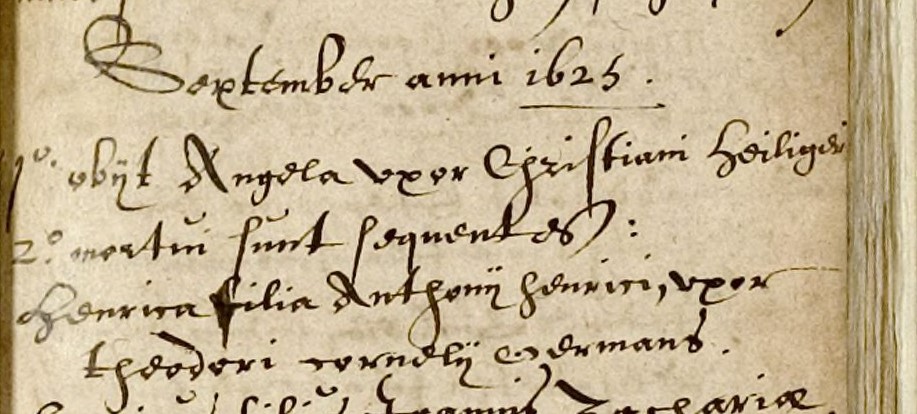 September anni 1625.
1º. obijt Angela uxor Christiani Heiligers
2º. mortui sunt sequentes:
Henrica filia Anthonij Henrici, uxor
theodori cornelij Germans.
filius Joannis Zachariæ